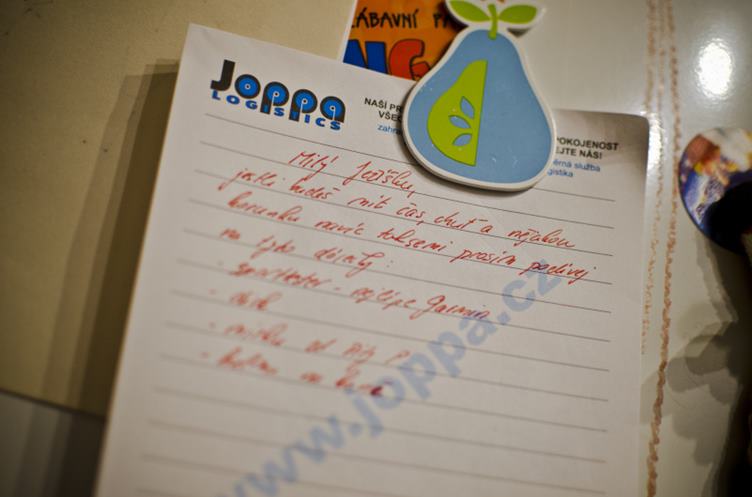 ÁBAVNÍ P
NG
Joppa
LOGISTICS
NAŠÍ PR
VŠEC
zahra
POKOJENOST
EJTE NÁS!
ěrná služba
gistika
Milý Ježíšku,
jestli budeš mít čas, chuť a nějakou
korunku navíc tak se mi prosím podívej
na tyto dárečky:
- sporttester - nejlépe Garmin
- 
- od P
- na
www.joppa.cz